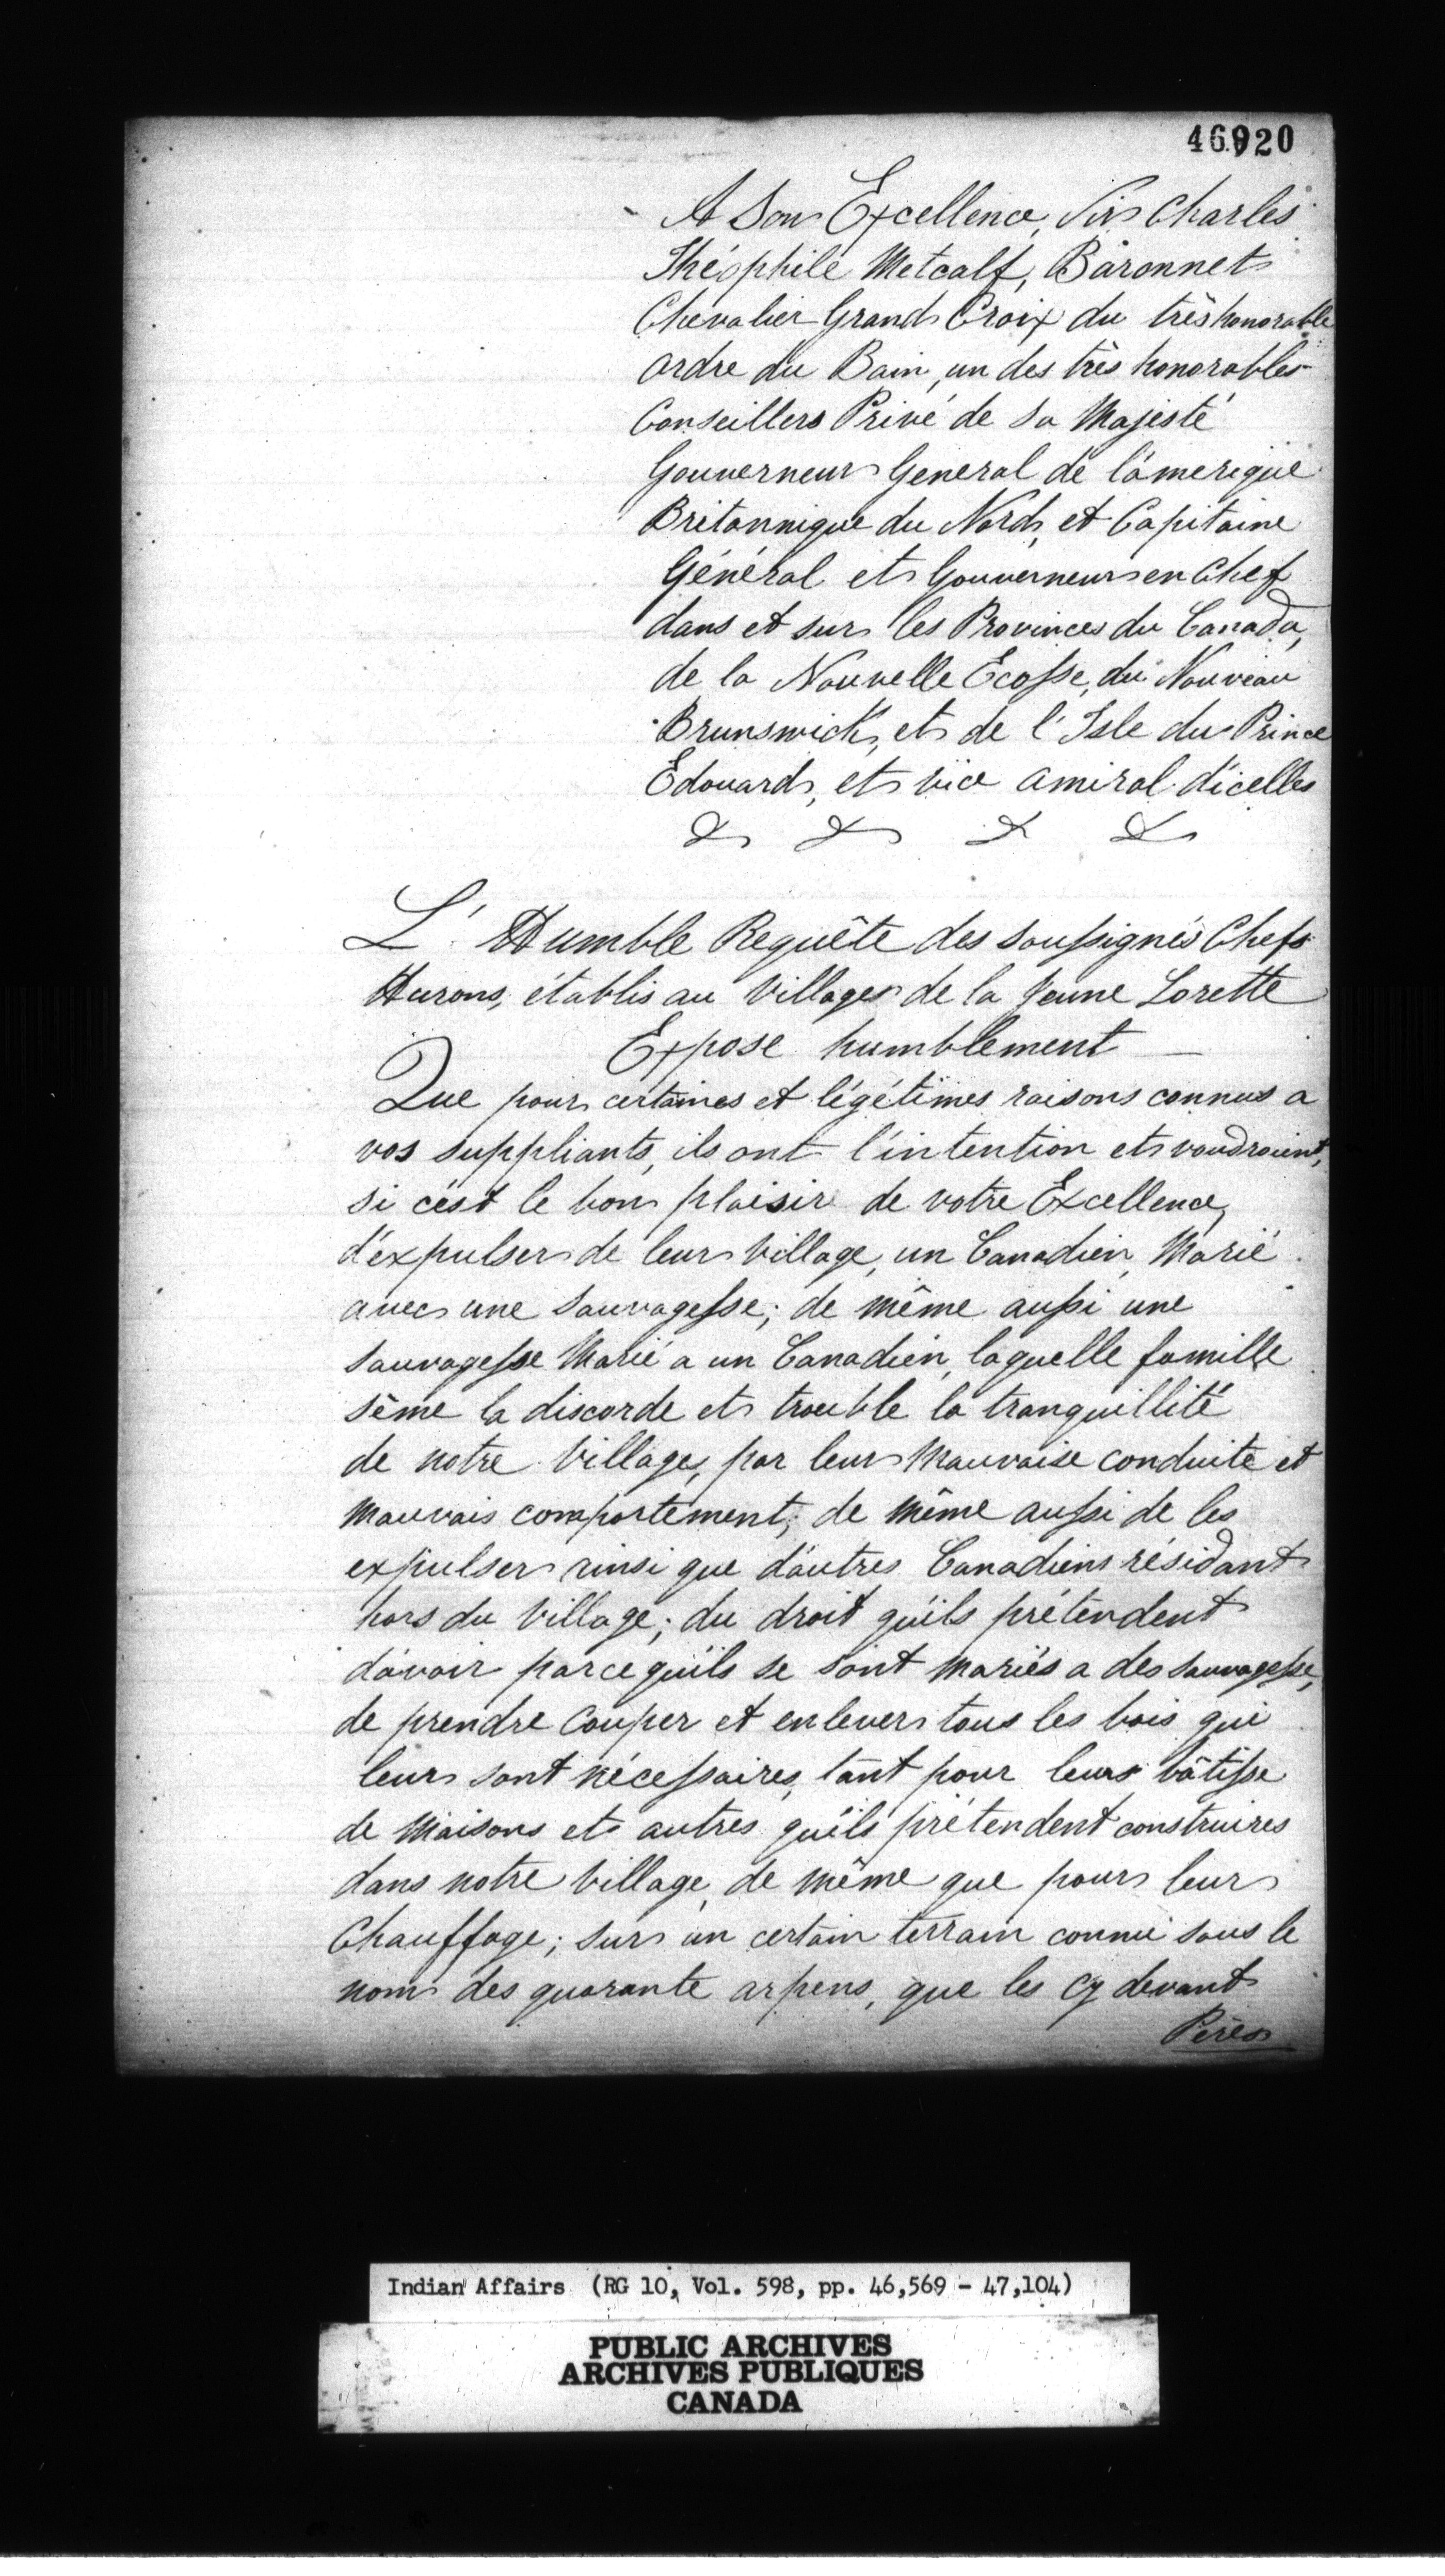 46920
A Son Excellence, Sir Charles
Théophile Metcalf, Baronnet
Chevalier Grand Croix du très honorable
ordre du Bain, un des très honorables
Conseillers Privé de Sa Majesté
Gouverneur General de l'amerique
Britannique du Nord, et Capitaine
Général et Gouverneur en Chef
dans et sur les Provinces du Canada,
de la Nouvelle Ecosse, du Nouveau
Brunswick, et de l'Isle du Prince
Edouard, et vice amiral d'icelles
& & & &
L'Humble Requête des soussignés Chefs
Hurons, établis au Village de la Jeune Lorette
Expose humblement —
Que pour certaines et légétimes raisons connus a
vos suppliants, ils ont l'intention et voudroient,
si c'est le bon plaisir de votre Excellence,
d'expulser de leur Village, un Canadien, Marié
avec une Sauvagesse; de même aussi une
Sauvagesse Marié a un Canadien, laquelle famille
sème la discorde et trouble la tranquillité
de notre Village, par leur Mauvaise conduite et
Mauvais comportement; de même aussi de les
expulser ainsi que d'autres Canadiens résidant
hors du Village; du droit qu'ils prétendent
d'avoir parcequ'ils se sont mariés a des Sauvagesse,
de prendre Couper et enlever tous les bois qui
leur sont nécessaires, tant pour leurs bâtisse
de Maisons et autres qu'ils prétendent construires
dans notre Village, de même que pour leur
Chauffage; sur un certain terrain connu sous le
nom des quarante arpens, que les Cy devant
Pères
Indian Affairs (RG 10, Vol. 598, pp. 46,569 - 47,104)
PUBLIC ARCHIVES
ARCHIVES PUBLIQUES
CANADA